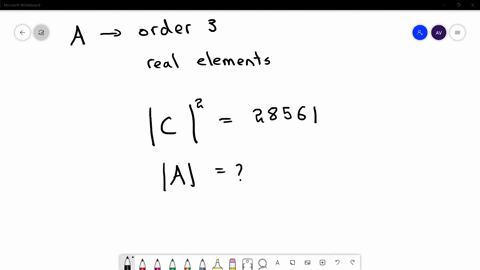 Microsoft Whiteboard
A → order 3
real elements
|C|² = 28561
|A| = ?
AV